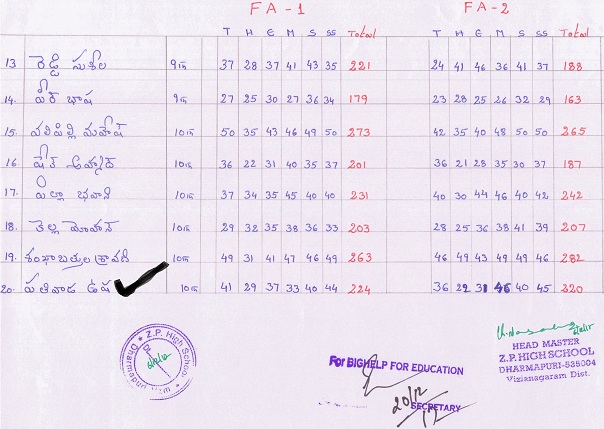 FA - 1 FA - 2
T H E M S SS Total T H E M S SS Total
13 రెడ్డి సుశీల 9th 37 28 37 41 43 35 221 24 41 46 36 41 37 188
14. పీర్ భాష 9th 27 25 30 27 36 34 179 23 28 25 26 32 29 163
15. వలిపిల్లి మహేష్ 10th 50 35 43 46 49 50 273 42 35 40 48 50 50 265
16 షేక్ 10th 36 22 31 40 35 37 201 36 21 28 35 30 37 187
17. పిల్లా భవాని 10th 37 34 35 45 40 40 231 40 30 44 46 40 42 242
18. తెల్ల మోహన్ 10th 29 32 35 38 36 33 203 28 25 36 38 41 39 207
19. శంఖాబత్తుల శ్రావణి 10th 49 31 41 47 46 49 263 46 49 43 49 49 46 282
20. పతివాడ ఉష 10th 41 29 37 33 40 44 224 36 22 31 46 40 45 220
Z.P. High School
For BIGHELP FOR EDUCATION
20/12/12
SECRETARY
HEAD MASTER
Z.P. HIGH SCHOOL
DHARMAPURI-535004
Vizianagaram Dist.